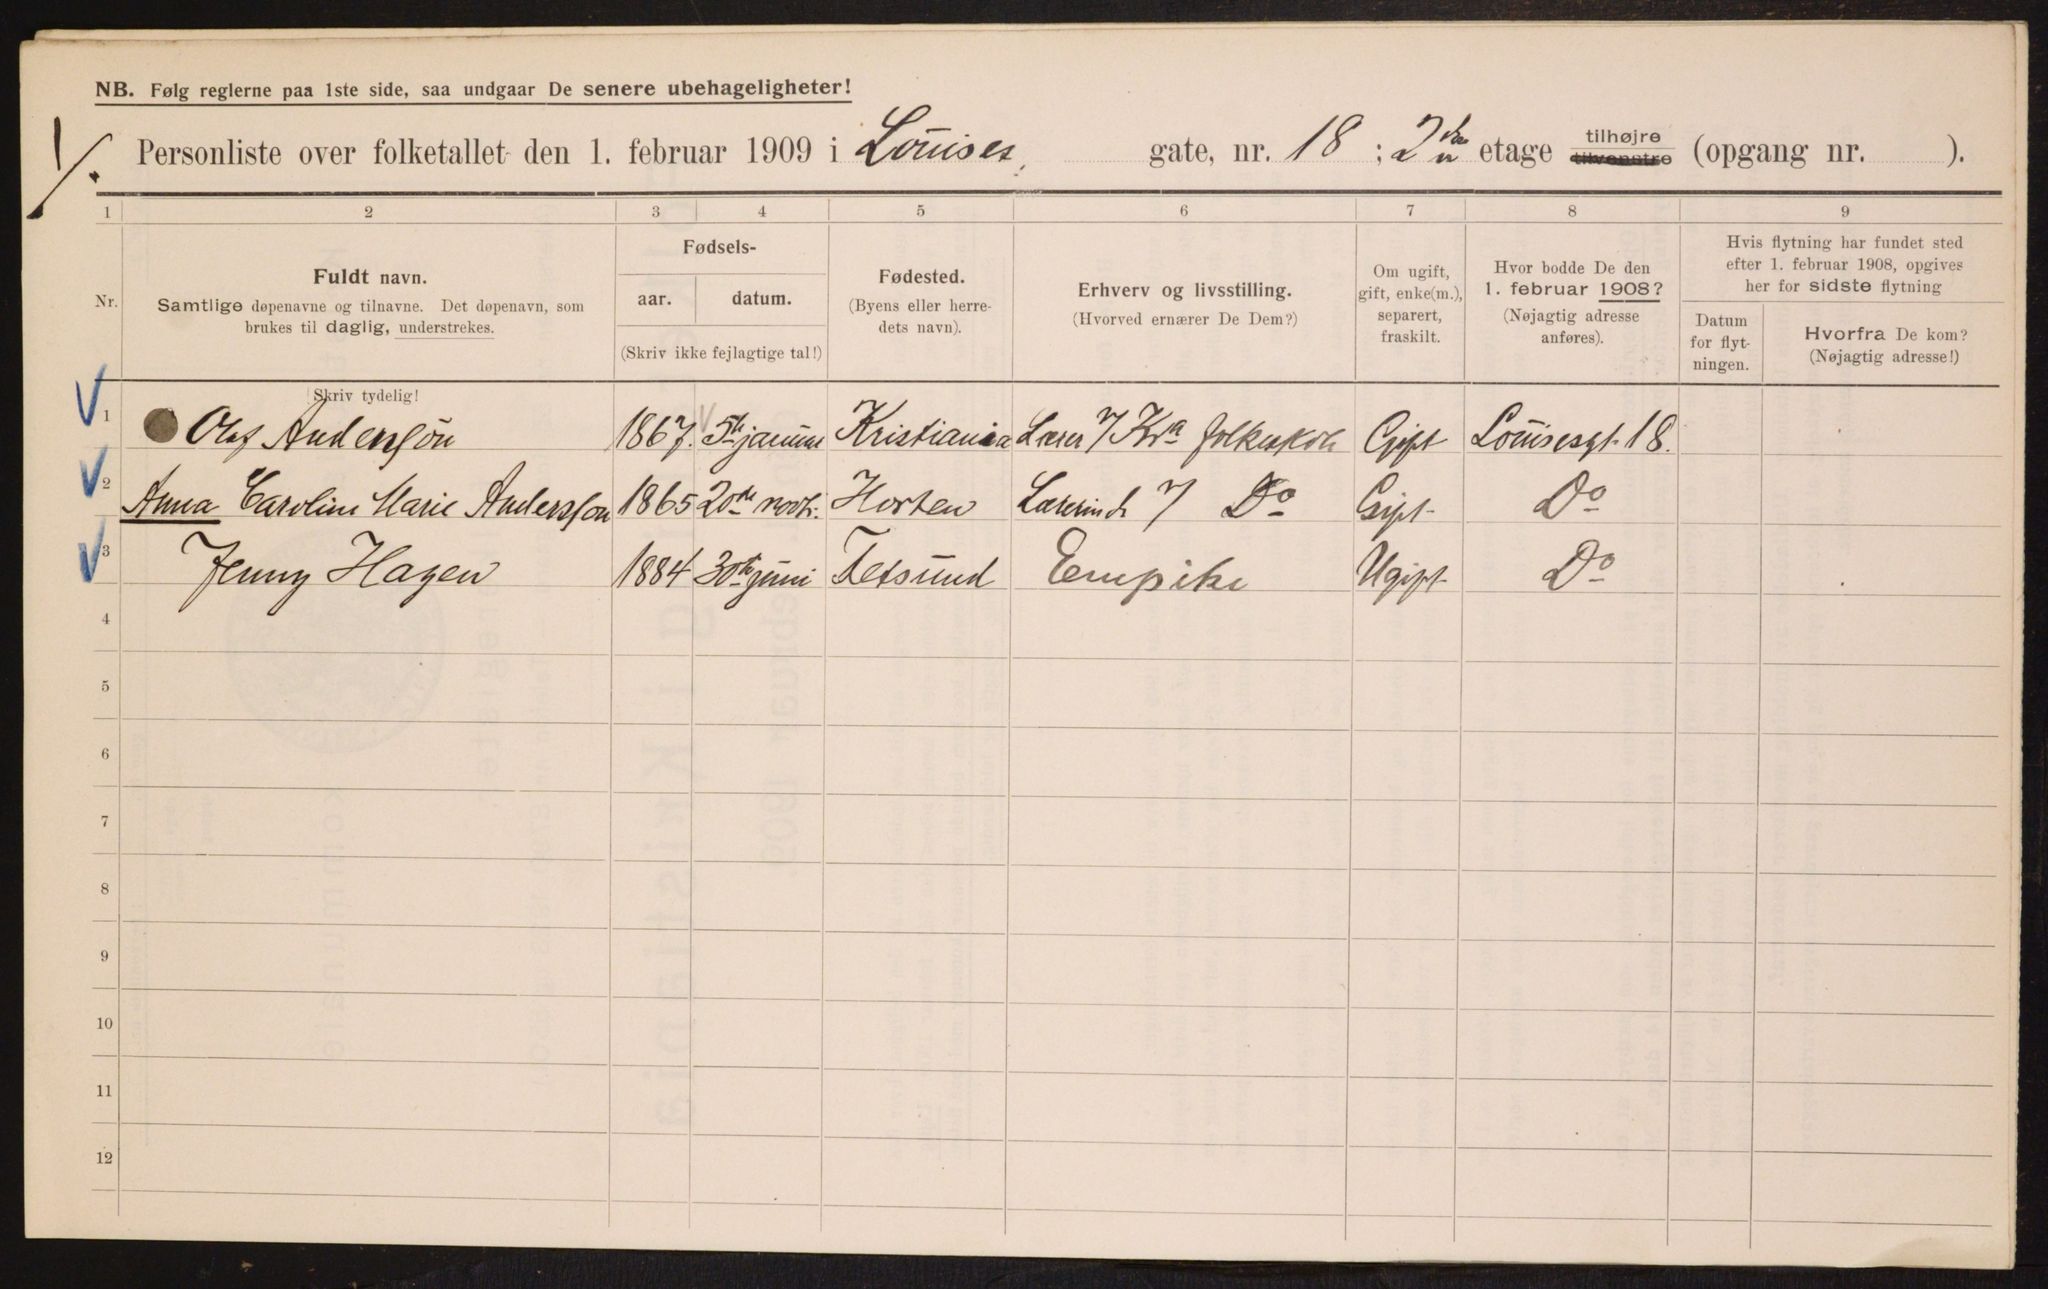 NB. Følg reglerne paa 1ste side, saa undgaar De senere ubehageligheter!
Personliste over folketallet den 1. februar 1909 i Louises gate, nr. 18 ; 2den etage tilhøjre tilvenstre (opgang nr. ).
1 2 3 4 5 6 7 8 9
Nr.
Fuldt navn.
Samtlige døpenavne og tilnavne. Det døpenavn, som
brukes til daglig, understrekes.
Fødsels-
aar. datum.
(Skriv ikke fejlagtige tal!)
Fødested.
(Byens eller herre-
dets navn).
Erhverv og livsstilling.
(Hvorved ernærer De Dem?)
Om ugift,
gift, enke(m.),
separert,
fraskilt.
Hvor bodde De den
1. februar 1908?
(Nøjagtig adresse
anføres).
Hvis flytning har fundet sted
efter 1. februar 1908, opgives
her for sidste flytning
Datum
for flyt-
ningen.
Hvorfra De kom?
(Nøjagtig adresse!)
Skriv tydelig!
1 Olaf Anderssön 1867. 5te januar Kristiania Lærer v/ Kra folkeskole Gift Louisesgt. 18.
2 Anna Caroline Marie Anderssön 1865 20de novb. Horten Lærerinde v/ Do Gift Do
3 Jenny Hagen 1884 30te juni Fetsund Enepike Ugift Do
4
5
6
7
8
9
10
11
12